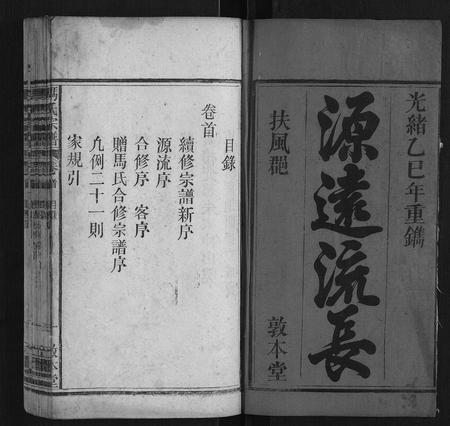 光緒乙巳年重鐫
源遠流長
扶風郡
敦本堂
目錄
卷首
續修宗譜新序
源流序
合修序 客序
贈馬氏合修宗譜序
凡例二十一則
家規引
敦本堂